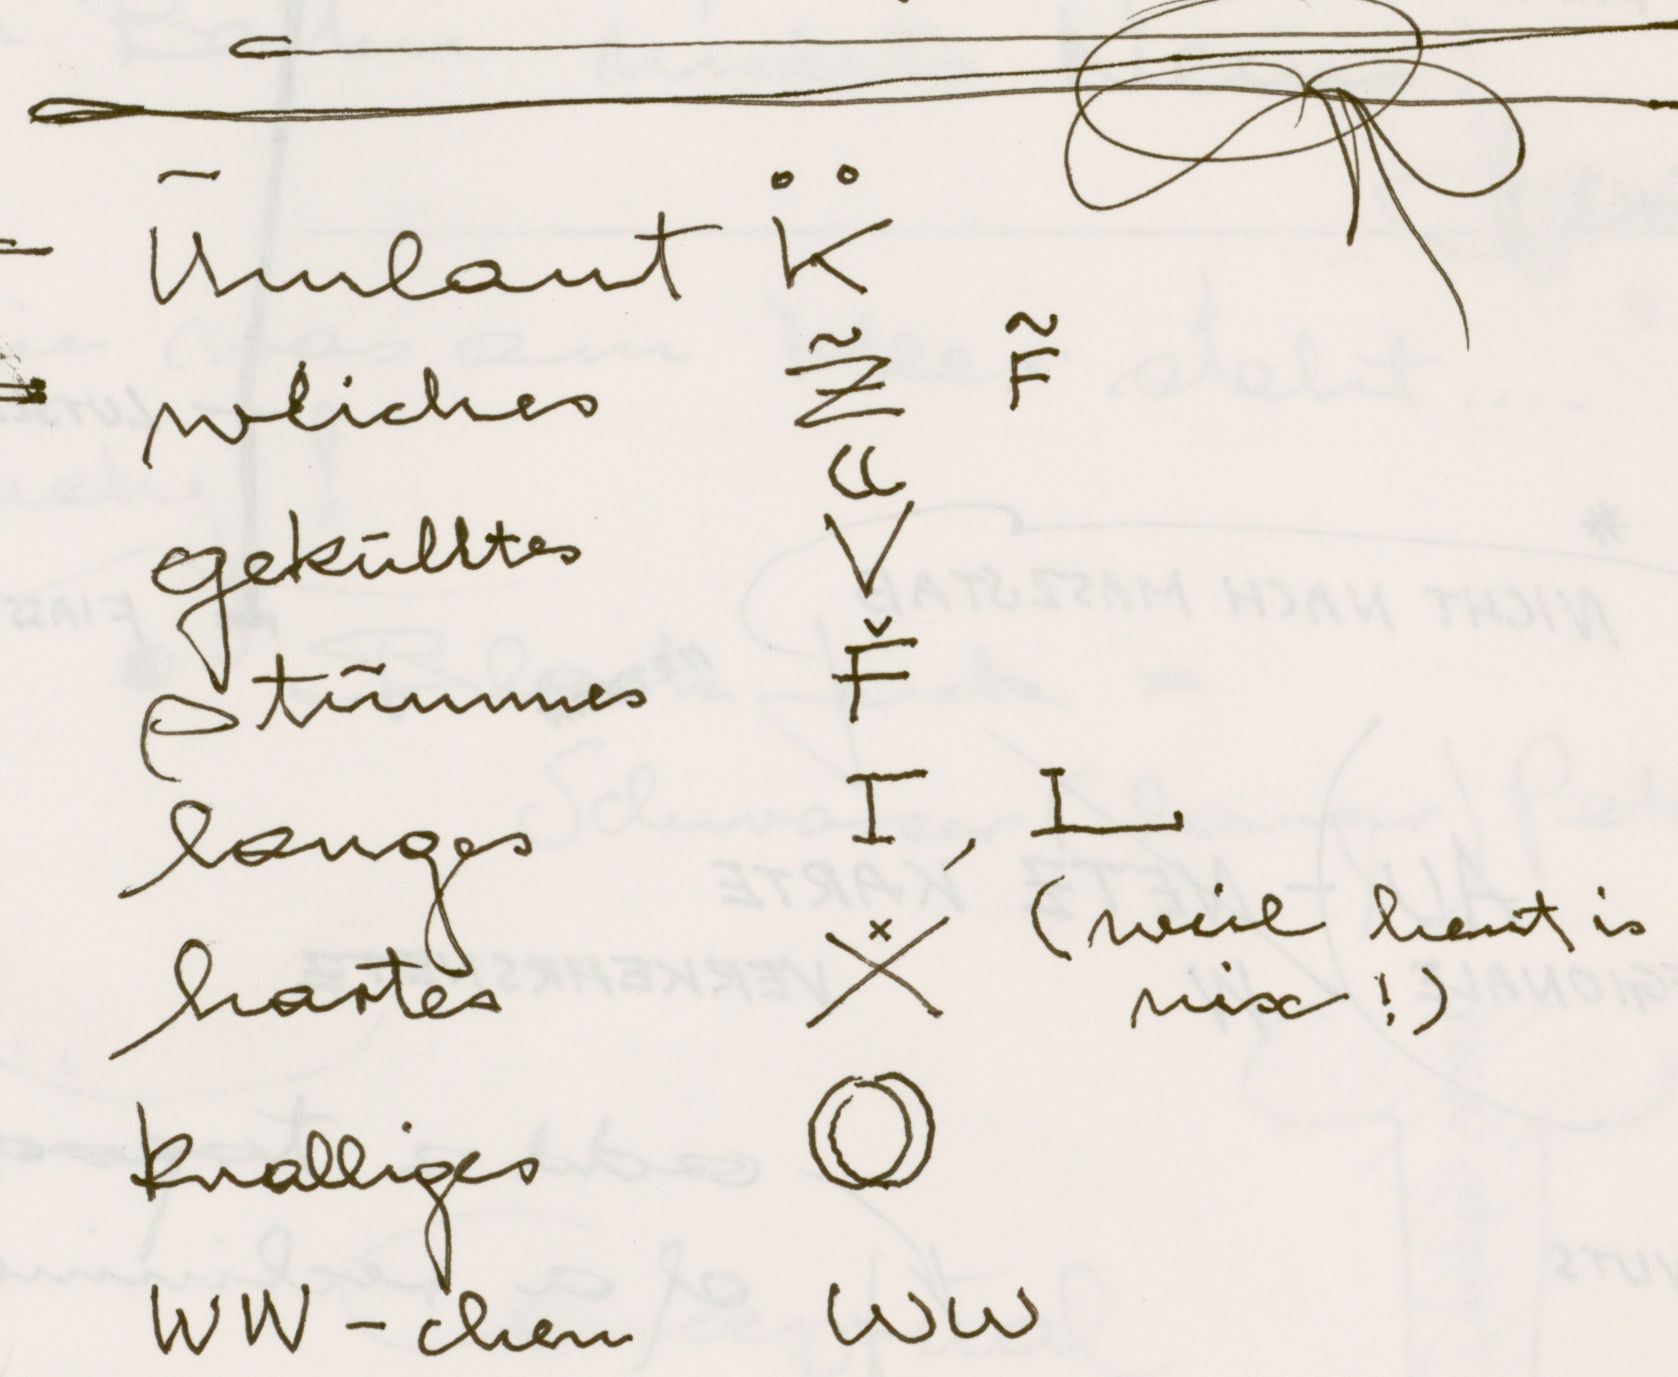 Ūmlaut K̈
wliches Z̃ F̃
gekūlltes V
stūmmes F̌
langes I, L
hartes X (weil heut is
nix!)
knalliges O
WW-chen WW